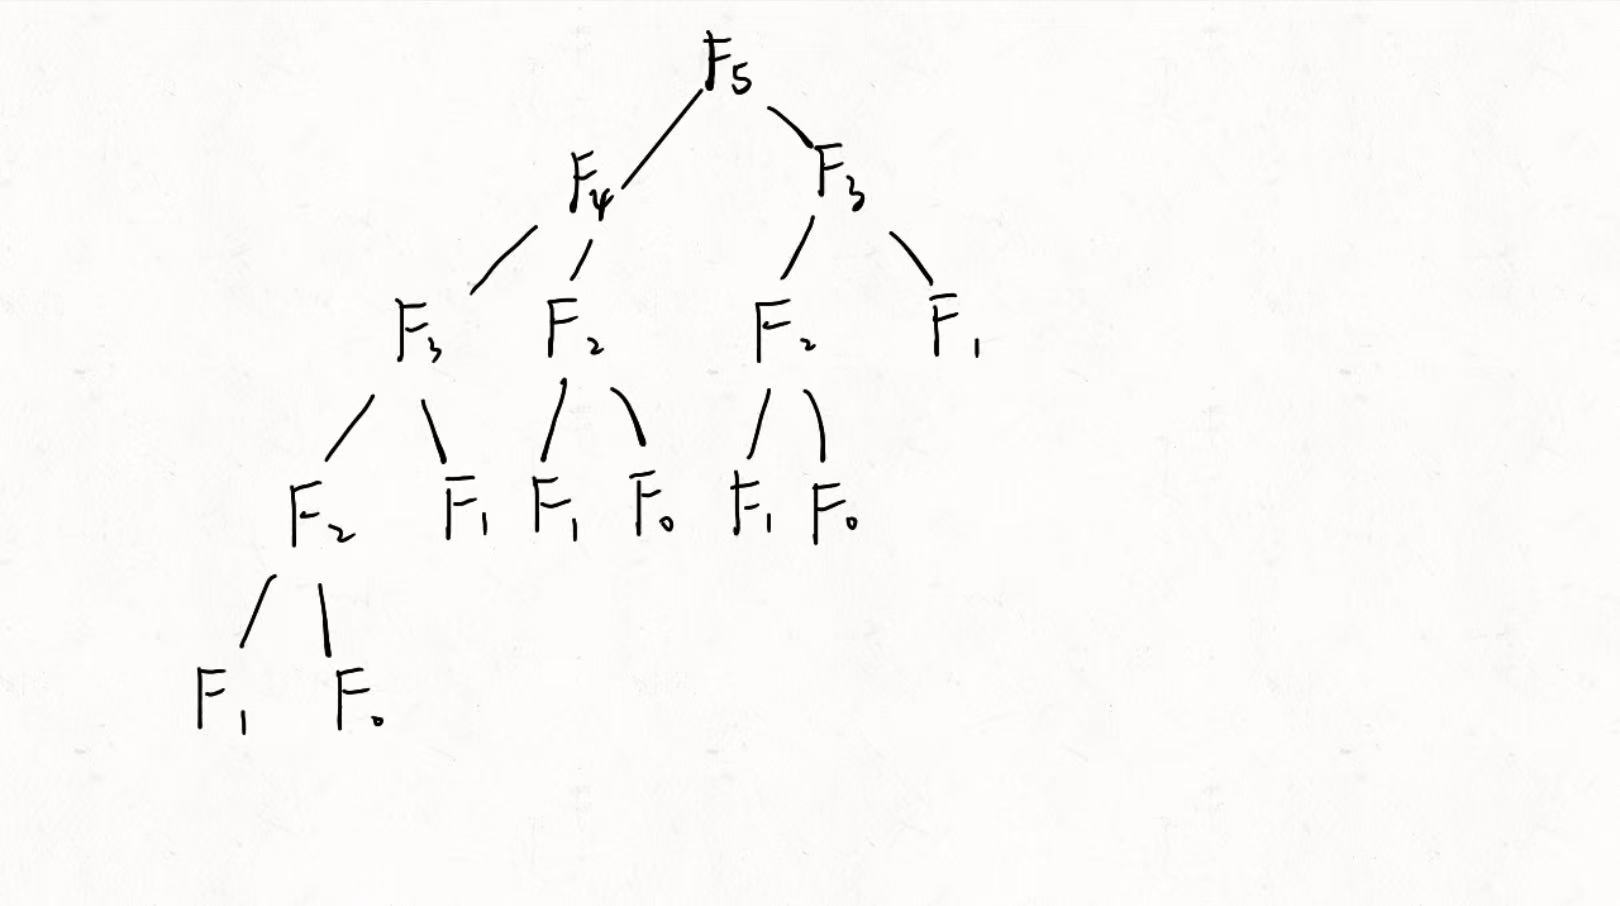 F₅
F₄ F₃
F₃ F₂ F₂ F₁
F₂ F₁ F₁ F₀ F₁ F₀
F₁ F₀